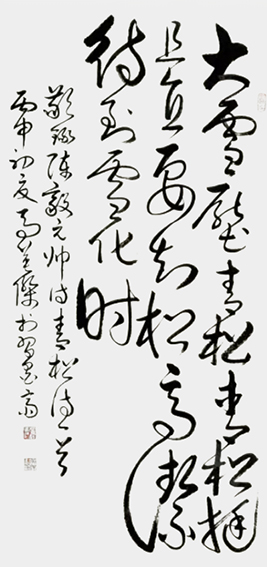 大雪压青松青松挺
且直要知松高洁
待到雪化时
敬录陈毅元帅诗青松诗一首
丙申初夏高